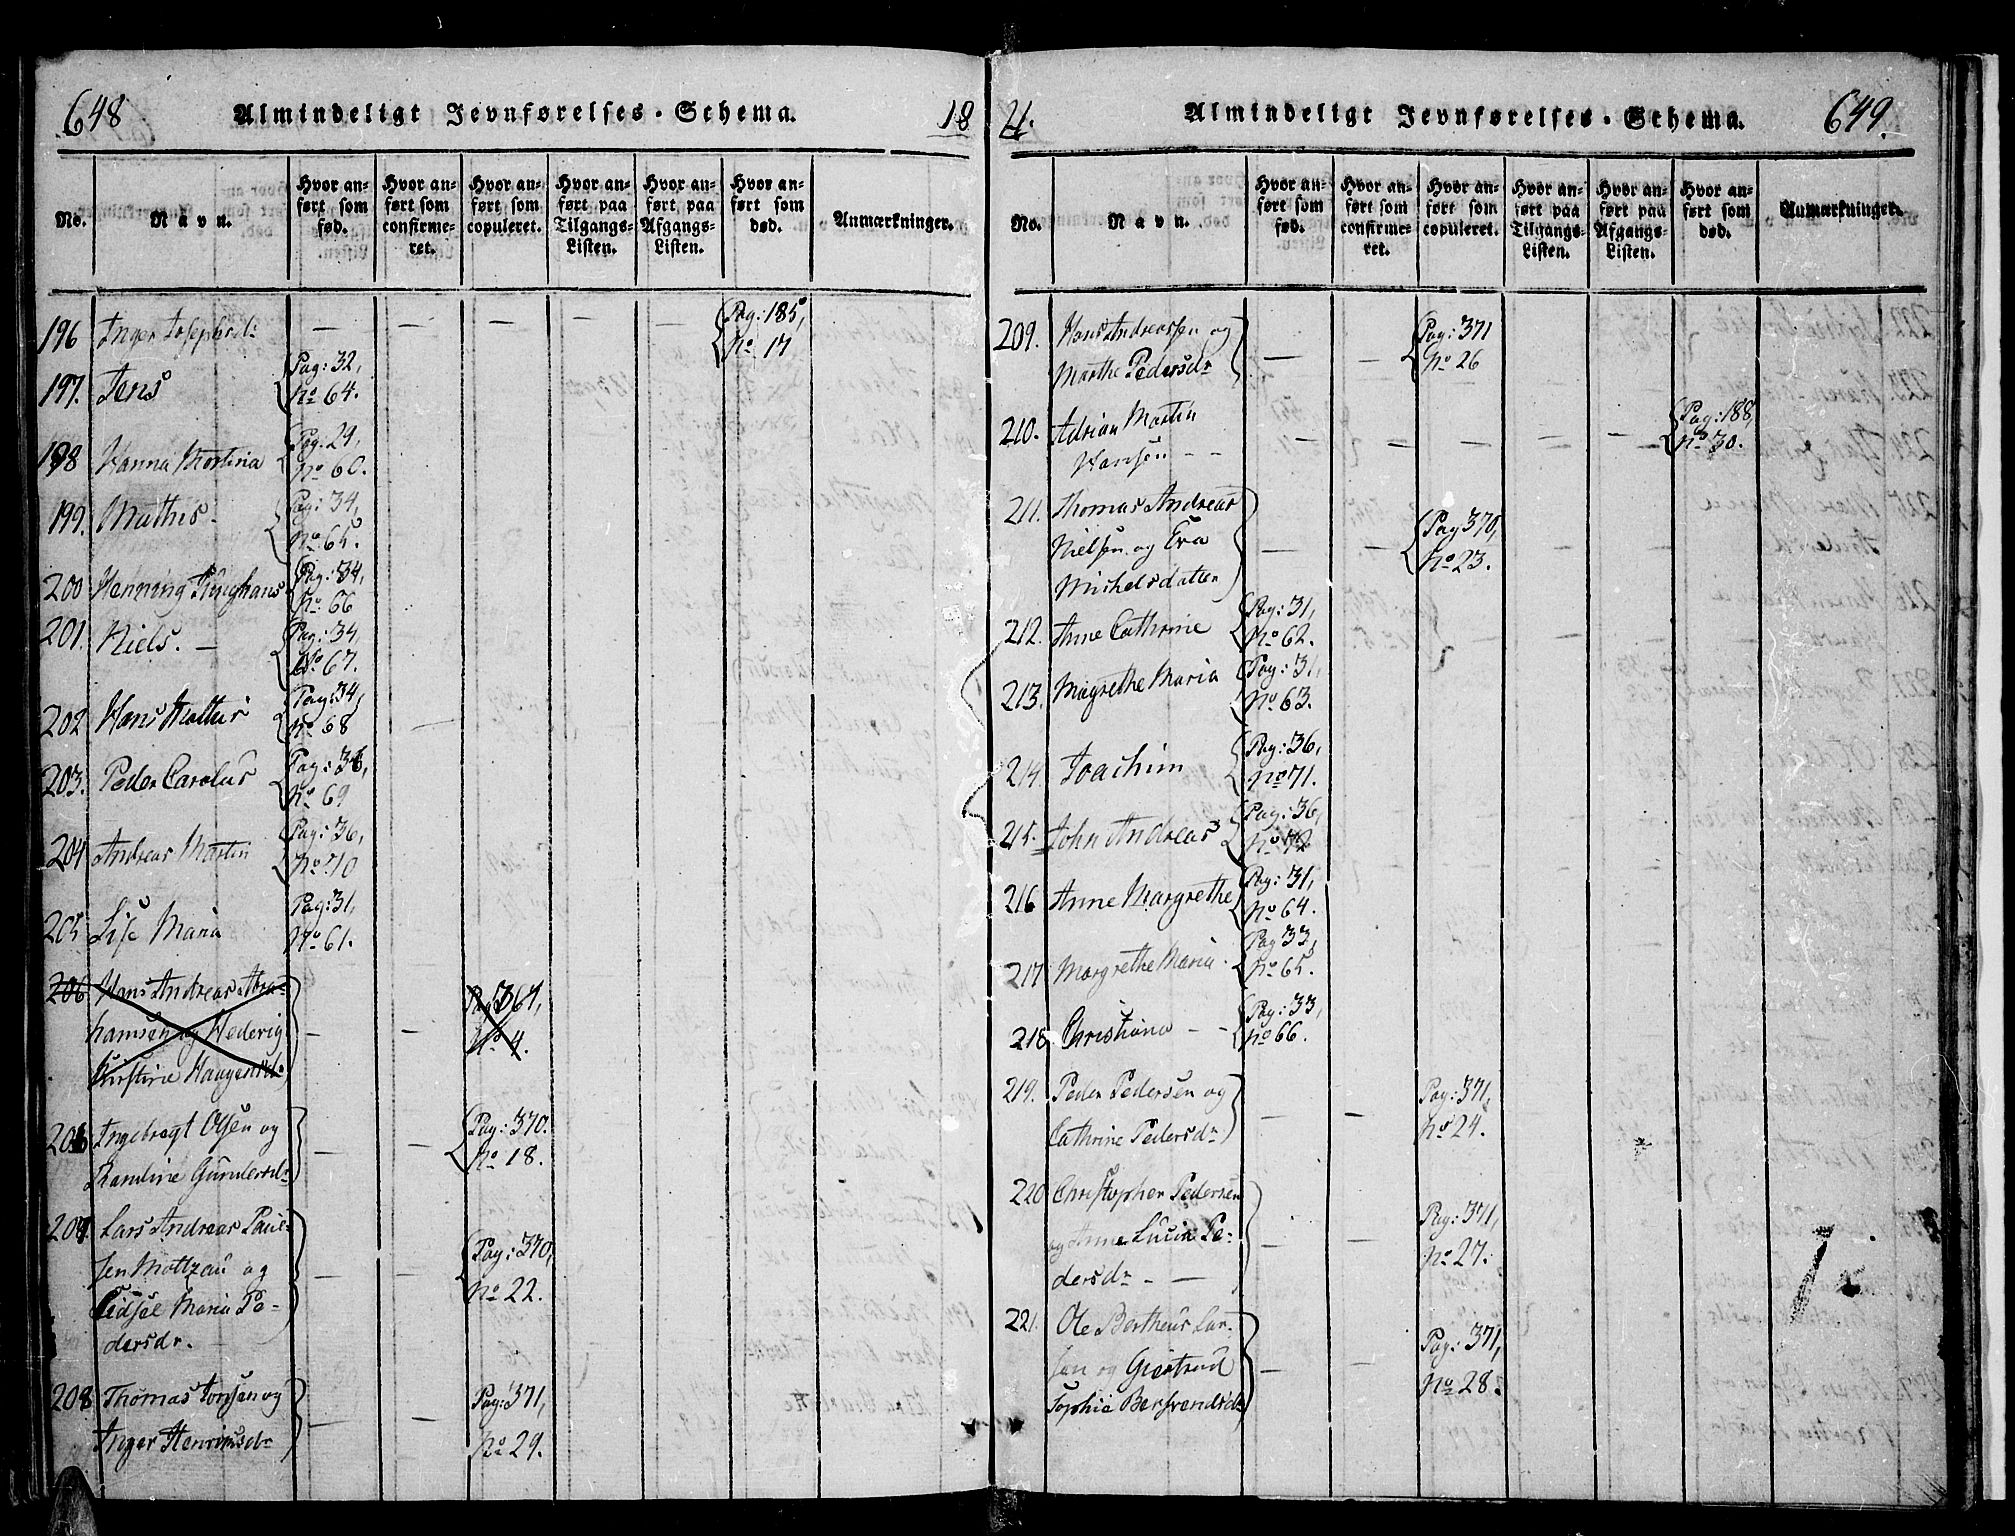 648 Almindeligt Jevnførelses-Schema. 18
No. Navn. Hvor anført som fød. Hvor anført som confirmeret. Hvor anført som copuleret. Hvor anført paa Tilgangs-Listen. Hvor anført paa Afgangs-Listen. Hvor anført som død. Anmærkninger.
196 Inger Josephsd: — — — — — Pag: 185,
No 17
197. Jens Pag: 32,
No 64.
198 Hanna Martina Pag: 29,
No 60.
199. Mathis Pag: 34,
No 65.
200 Henning Pag: 34,
No 66
201. Niels. — Pag: 34,
No 67.
202 Hans Pag: 34,
No 68
203. Peder Carolus Pag: 36,
No 69
204 Andreas Martin Pag: 36,
No 70
205 Lise Maria Pag: 31,
No 61.
206 Hans Andreas Abra-
hamsen og Hedevig — — Pag 367,
No 4.
Kirstine Haagensd:
206 Ingebregt Olsen og Pag: 370.
— — No 18.
Randine Gundersdr
207. Lars Andreas Paul-
sen Moltzau og — — Pag: 370,
No 22.
Zidsel Maria Pe-
dersdr. —
208 Thomas Jonsen og — — Pag: 371,
Inger Henriksdr No 29.
21. Almindeligt Jevnførelses-Schema. 649.
No. Navn. Hvor anført som fød. Hvor anført som confirmeret. Hvor anført som copuleret. Hvor anført paa Tilgangs-Listen. Hvor anført paa Afgangs-Listen. Hvor anført som død. Anmærkninger.
209. Hans Andreassen og Pag: 371
— — No 26
Marthe Pedersdr
210. Adrian Martin — — — — — Pag: 188,
No 30.
Hansen - -
211. Thomas Andreas
Nielsen og Eva — — Pag 370,
No 23.
Michelsdatter
212. Anne Cathrine Pag: 31,
No 62.
213. Magrethe Maria Pag: 31,
No 63.
214 Joachim Pag: 36,
No 71.
215. John Andreas Pag: 36,
No 72
216 Anne Margrethe Pag: 31,
No 64.
217 Margrethe Maria Pag 33,
No 65.
218. Christiana - - Pag: 33,
No 66.
219. Peder Pedersen og — — Pag: 371,
Cathrine Pedersdr No 24.
220 Christopher Pedersen
og Anne Lucia Pe- — — Pag: 371,
No 27.
dersdr - —
221. Ole Bertheus Lar-
sen og Giertrud — — Pag: 371,
No 28.
Sophie Bersvendsdr